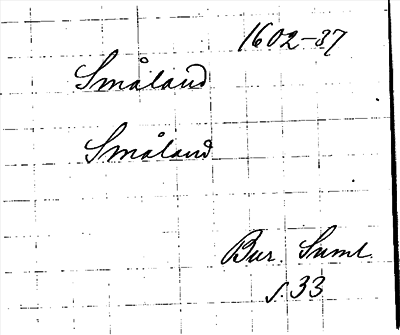 1602-37
Småland
Småland
Bur. Suml.
s. 33